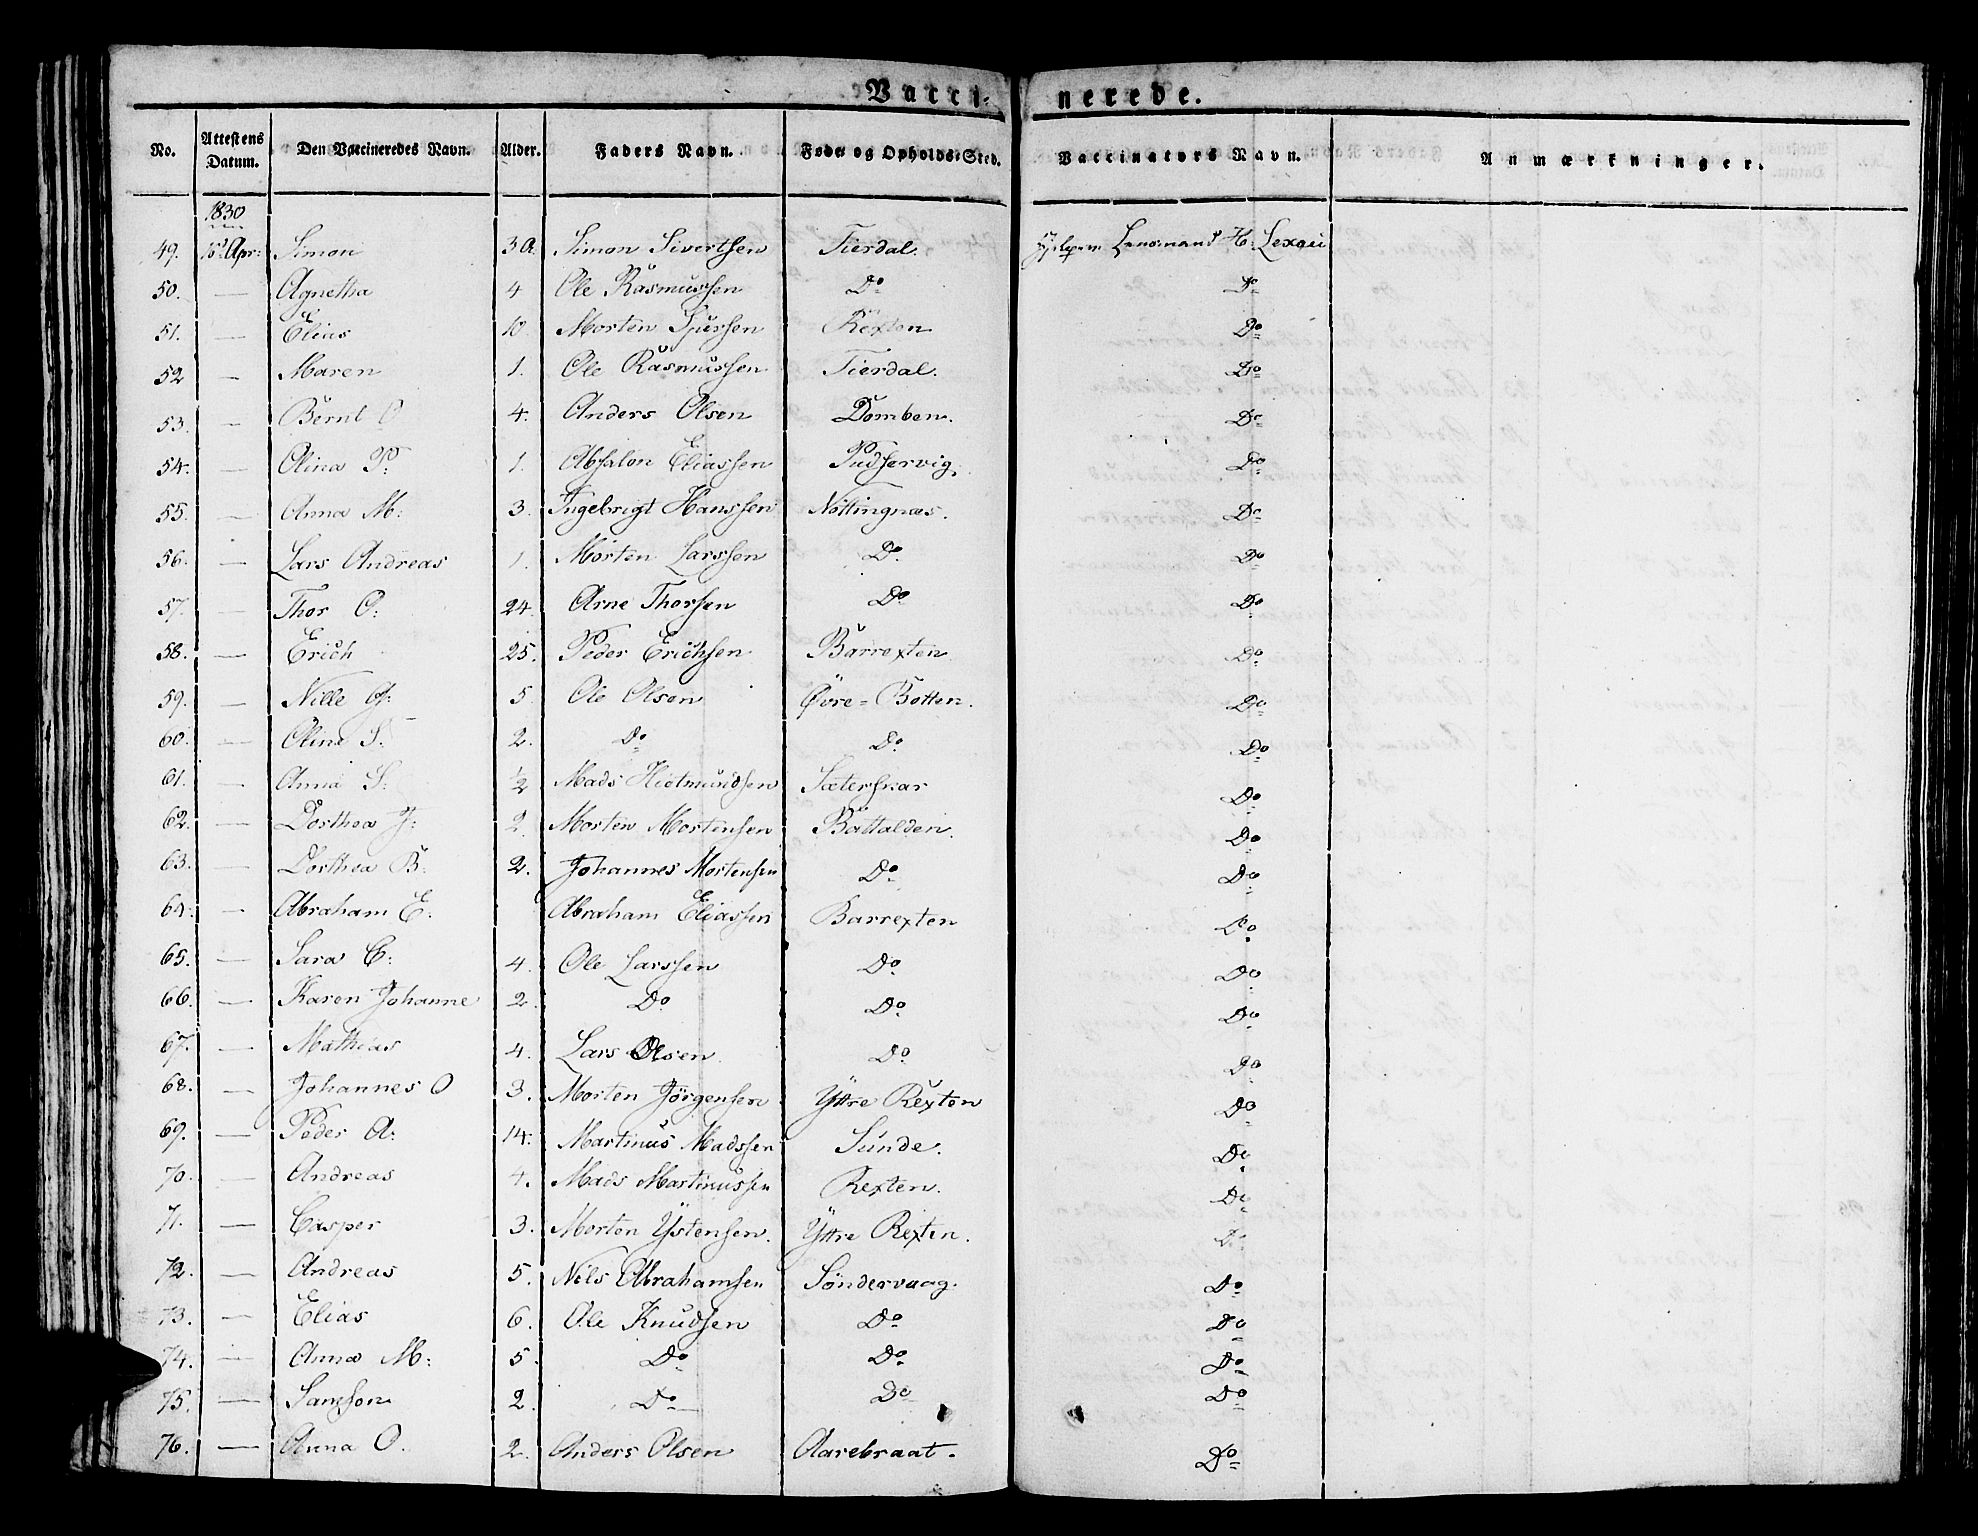 Vacci- nerede.
No. Attestens Datum. Den Vaccineredes Navn. Alder. Faders Navn. Føde- og Opholds-Sted. Vaccinators Navn. Anmærkninger.
1830
49. 15 Apr: Simon 3 A. Simon Sivertsen Tierdal. Lensmand H: Lexau
50. — Agnetha 4 Ole Rasmussen Do Do
51. — Elias 10 Morten Sjursen Rexten Do
52 — Maren 1. Ole Rasmussen Tierdal. Do
53. — Bernt O 4. Anders Olsen Domben. Do
54. — Olina P: 1. Absalon Eliassen Pudservig. Do
55. — Anna M: 3. Ingebrigt Hanssen Nottingnæs. Do
56. — Lars Andreas 1. Morten Larssen Do Do
57. — Thor O: 24. Arne Thorsen Do Do
58. — Erich 25. Peder Erichsen Barrexten Do
59. — Nille G: 5. Ole Olsen Øvre=Botten. Do
60. — Olina S. 2. Do Do Do
61. — Anna S: ½ Mads Hiotmundsen Sæterskar Do
62. — Dorthea J: 2. Morten Mortensen Battalden. Do
63. — Dorthea B: 2. Johannes Mortensen Do Do
64. — Abraham E: Abraham Eliassen Barrexten Do
65. — Sara C: 4. Ole Larssen Do Do
66. — Karen Johanne 2. Do Do Do
67. — Mathias 4. Lars Olsen Do Do
68. — Johannes O 3. Morten Jörgensen Yttre Rexten Do
69. — Peder A: 14. Martinus Madssen Sunde. Do
70. — Andreas 4. Mads Martinussen Rexten. Do
71. — Casper 3. Morten Ystensen. Yttre Rexten. Do
72. — Andreas 5. Nils Abrahamsen Søndervaag. Do
73. — Elias 6. Ole Knudsen Do Do
74. — Anna M: 5. Do Do Do
75. — Samson 2. Do Do Do
76. — Anna O. 2. Anders Olsen Aarebraat. Do